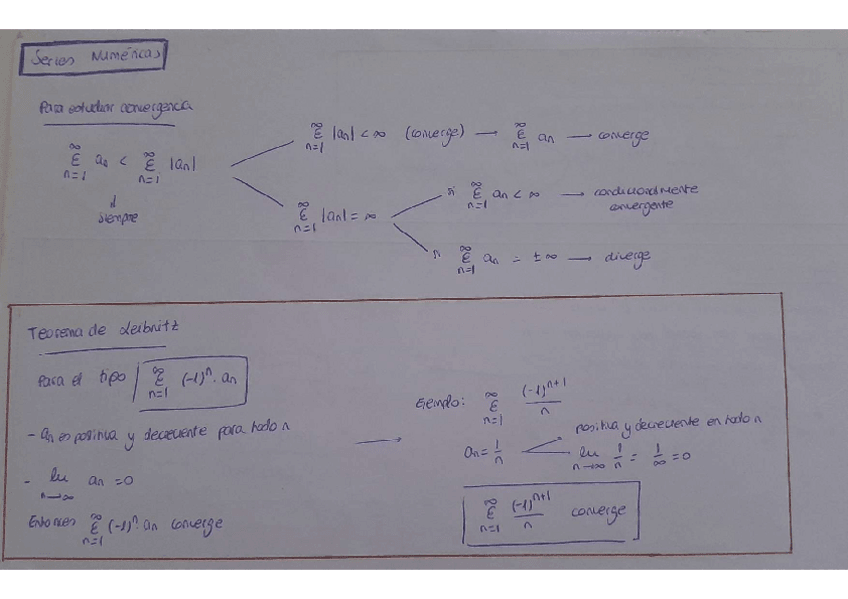 Series Numéricas
Para estudiar convergencia
∞ Σ n=1 an < ∞ Σ n=1 |an|
⇓
siempre
∞ Σ n=1 |an| < ∞ (converge) → ∞ Σ n=1 an → converge
∞ Σ n=1 |an| = ∞
si ∞ Σ n=1 an < ∞ → condicionalmente
convergente
si ∞ Σ n=1 an = ±∞ → diverge
Teorema de Leibnitz
Para el tipo ∞ Σ n=1 (-1)^n · an
- an es positiva y decreciente para todo n
- lim n→∞ an = 0
Entonces ∞ Σ n=1 (-1)^n · an converge
→
Ejemplo: ∞ Σ n=1 (-1)^(n+1) / n
an = 1/n
positiva y decreciente en todo n
lim n→∞ 1/n = 1/∞ = 0
∞ Σ n=1 (-1)^(n+1) / n converge